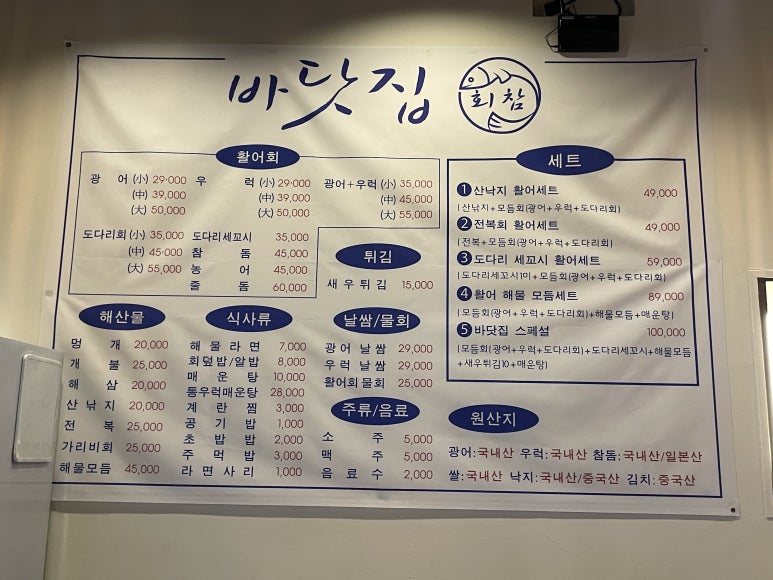 바닷집
회참
활어회
광 어 (小) 29·000
(中) 39,000
(大) 50,000
우 럭 (小) 29·000
(中) 39,000
(大) 50,000
광어+우럭 (小) 35,000
(中) 45,000
(大) 55,000
도다리회 (小) 35,000
(中) 45·000
(大) 55,000
도다리세꼬시 35,000
참 돔 45,000
농 어 45,000
줄 돔 60,000
튀김
새우튀김 15,000
세트
1 산낙지 활어세트 49,000
(산낙지+모듬회(광어+우럭+도다리회)
2 전복회 활어세트 49,000
(전복+모듬회(광어+우럭+도다리회)
3 도다리 세꼬시 활어세트 59,000
(도다리세꼬시1미+모듬회(광어+우럭+도다리회)
4 활어 해물 모듬세트 89,000
(모듬회(광어+우럭+도다리회)+해물모듬+매운탕)
5 바닷집 스페셜 100,000
(모듬회(광어+우럭+도다리회)+도다리세꼬시+해물모듬
+새우튀김10+매운탕)
해산물
멍 개 20,000
개 불 25,000
해 삼 20,000
산 낚 지 20,000
전 복 25,000
가리비회 25,000
해물모듬 45,000
식사류
해 물 라 면 7,000
회덮밥/알밥 8,000
매 운 탕 10,000
통우럭매운탕 28,000
계 란 찜 3,000
공 기 밥 1,000
초 밥 밥 2,000
주 먹 밥 3,000
라 면 사 리 1,000
날쌈/물회
광 어 날 쌈 29,000
우 럭 날 쌈 29,000
활어회 물회 25,000
주류/음료
소 주 5,000
맥 주 5,000
음 료 수 2,000
원산지
광어:국내산 우럭:국내산 참돔:국내산/일본산
쌀:국내산 낙지:국내산/중국산 김치:중국산